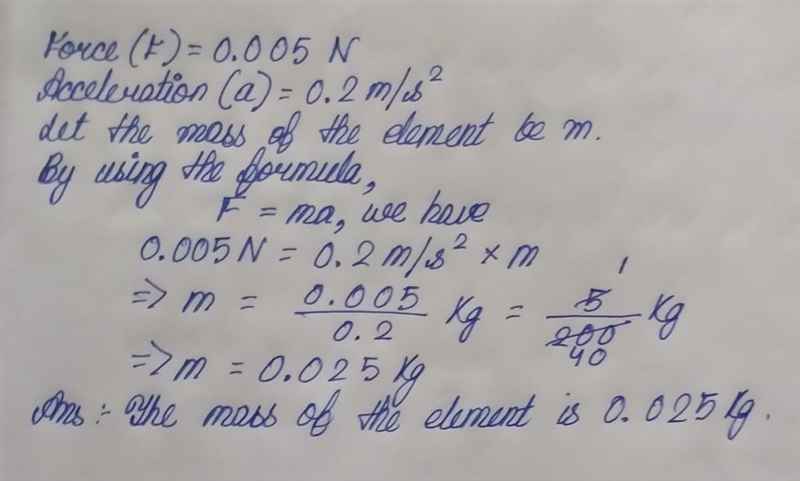 Force (F) = 0.005 N
Acceleration (a) = 0.2 m/s²
Let the mass of the element be m.
By using the formula,
F = ma, we have
0.005 N = 0.2 m/s² × m
=> m = 0.005/0.2 Kg = 5/200 Kg
1
40
=> m = 0.025 Kg
Ans :- The mass of the element is 0.025 Kg.